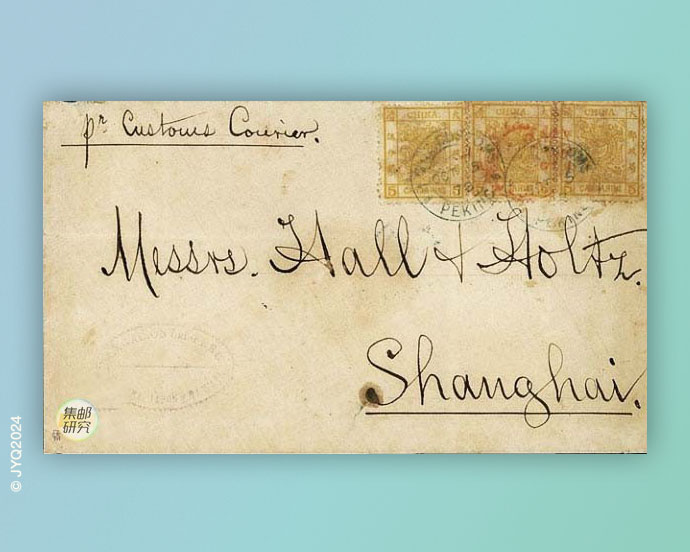 pr Customs Courier.
CHINA CHINA CHINA
5 5 5 5 5
PEKING
Messrs. Hall & Holtz.
Shanghai.
集邮
研究
© JYQ2024